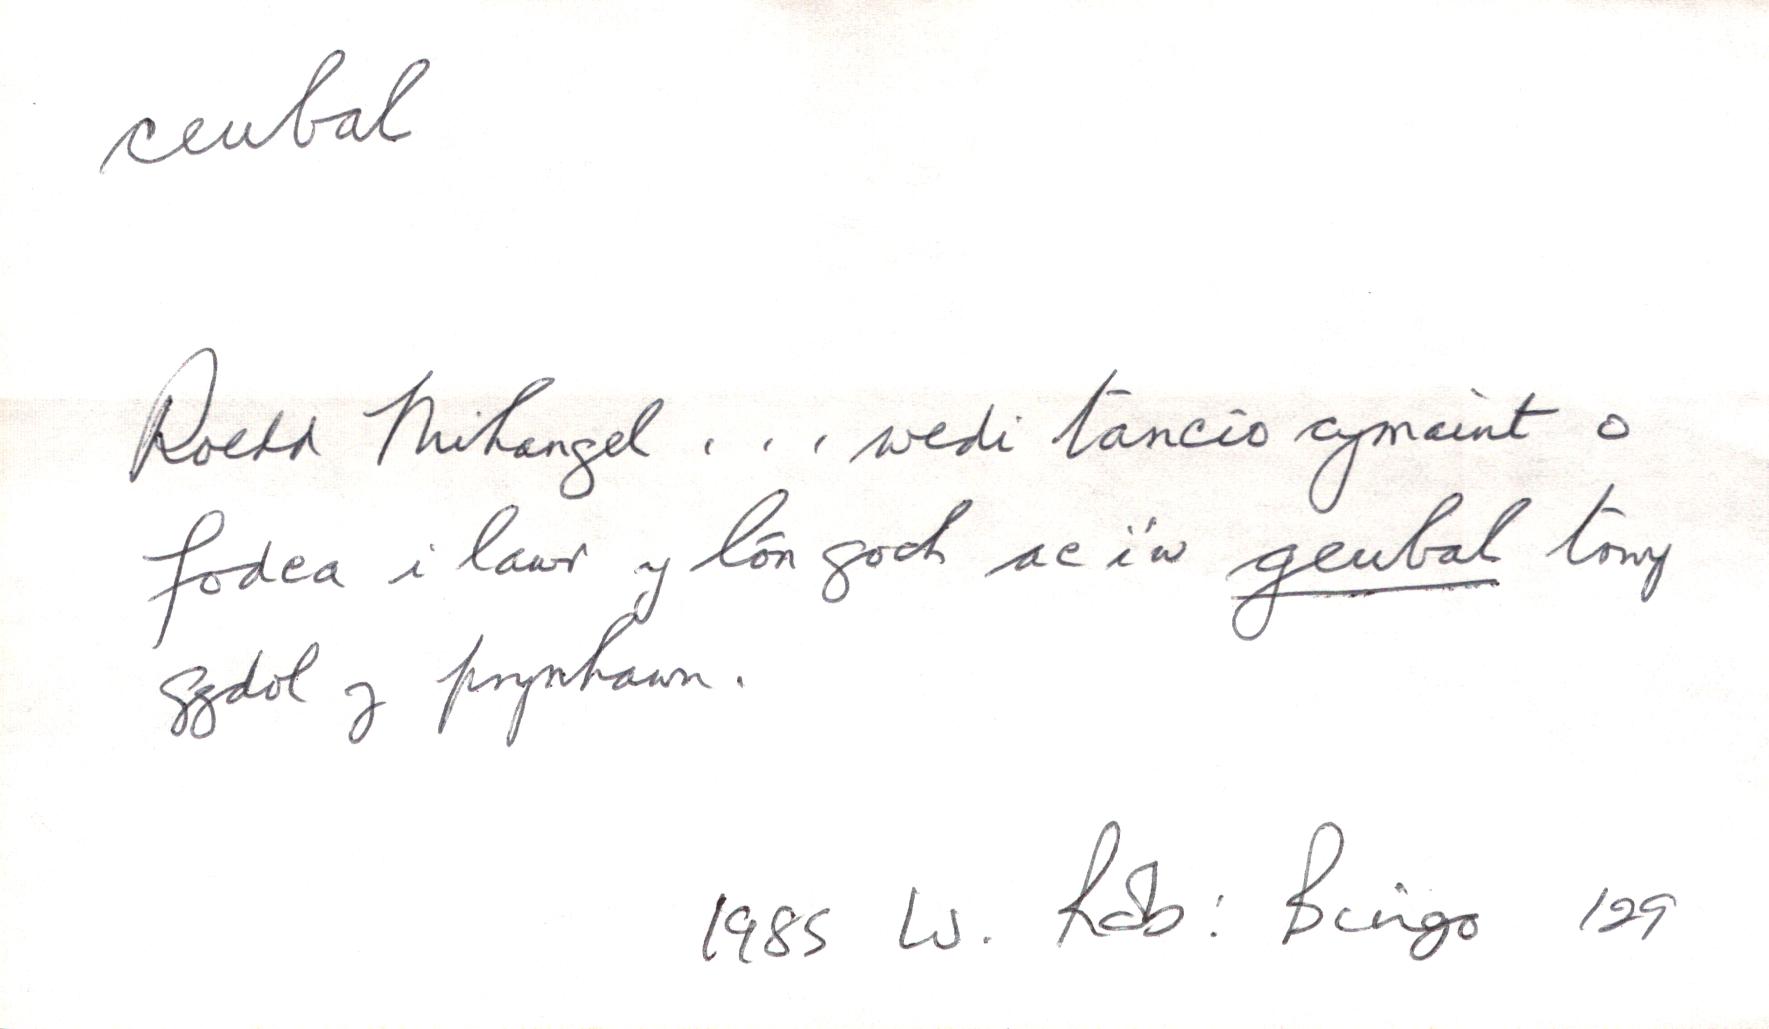 ceubal
Roedd Mihangel . . . wedi tancio cymaint o
fodca i lawr y lôn goch ac i'w geubal trwy
gydol y prynhawn.
1985 W. Rob: Bingo 129